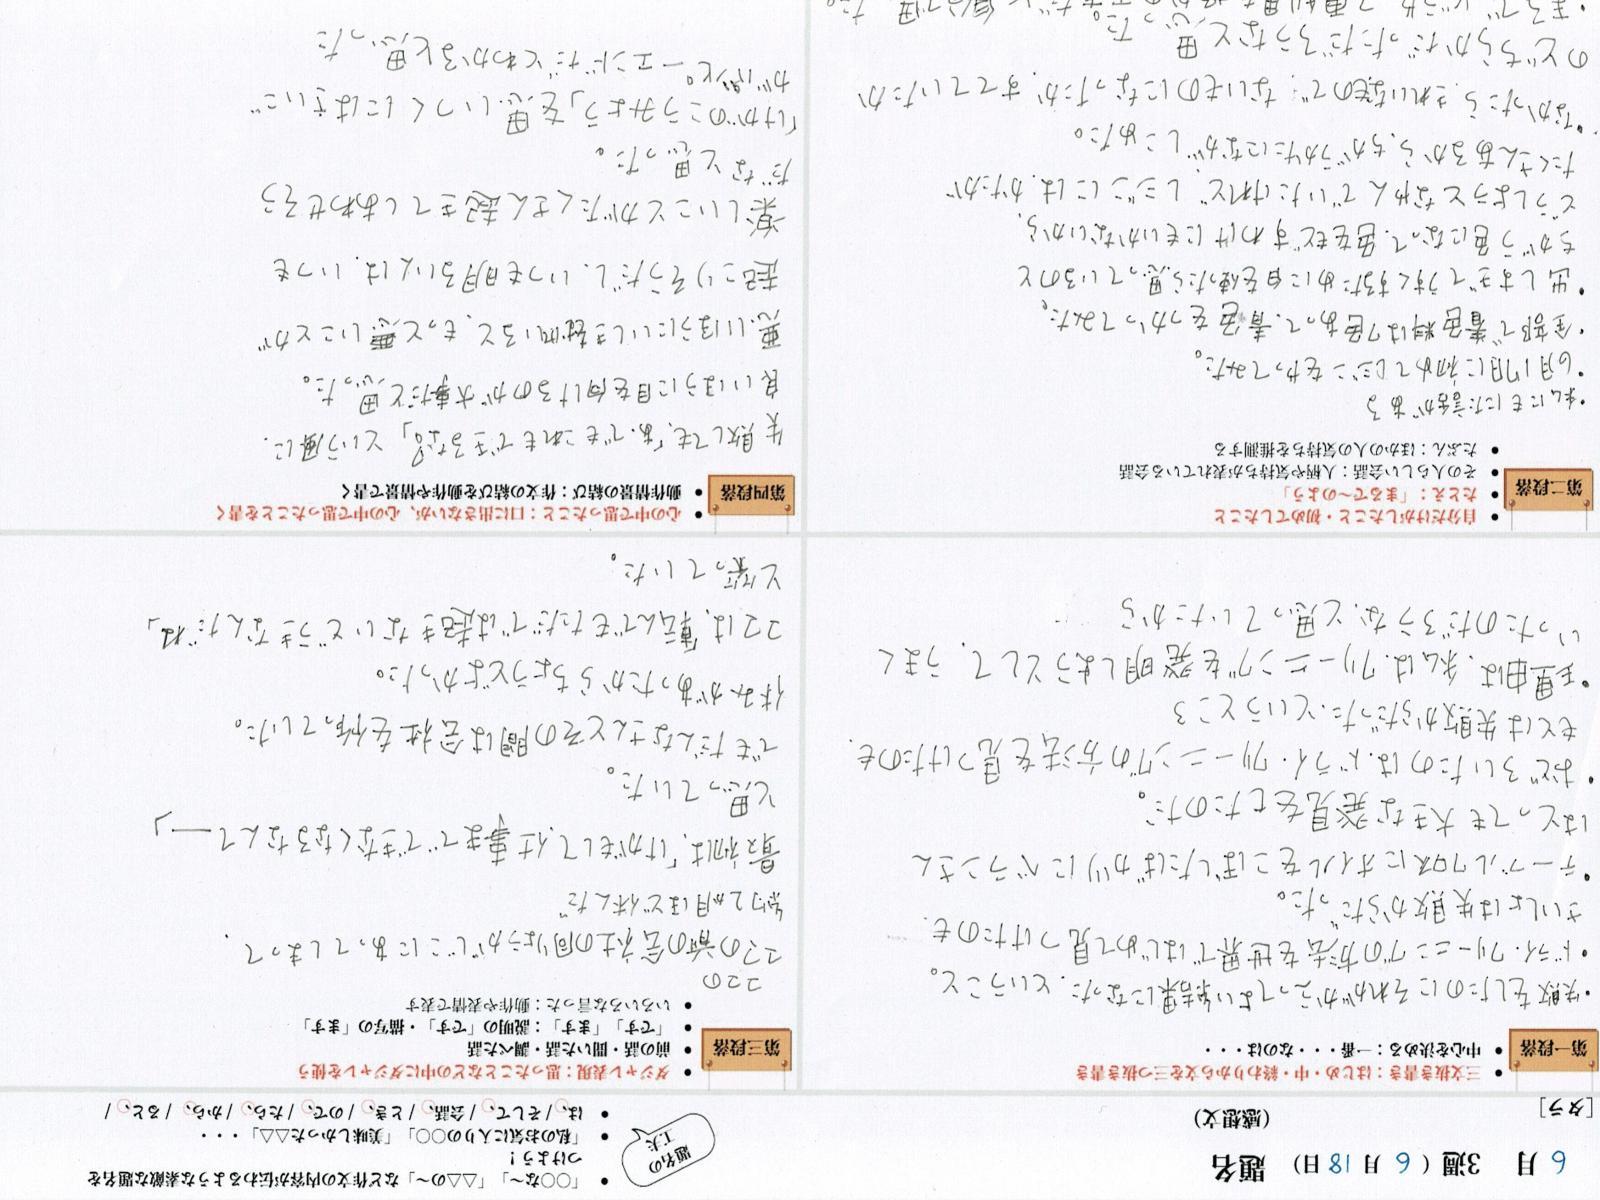 6月 3週(6月18日) 題名
[タラ] (感想文)
題名の工夫
• 「○○な~」「△△の~」など作文の内容が伝わるような素敵な題名を
つけよう!
• 「私のお気に入りの○○」「美味しかった△△」・・・
• は、/そして、/会話、/とき、/ので、/たら、/から、/ると、/
第一段落
• 三文抜き書き:はじめ・中・終わりから文を三つ抜き書き
• 中心を決める:一番・・・なのは・・・
・失敗をしたのにそれがかえってよい結果になった、ということ。
・ドライ・クリーニングの方法を世界ではじめて見つけたのも、
さいしょは失敗からだった。
・テーブルクロスにオイルをこぼしたばかりにベランさん
はとっても大きな発見をしたのだ。
・おどろいたのは、ドライ・クリーニングの方法を見つけたのも、
もとは失敗からだった、というところ
・理由は、私は、クリーニングを発明しようとして、うまく
いったのだろうな、と思っていたから
第二段落
• 自分だけがしたこと・初めてしたこと
• たとえ:「まるで~のよう」
• その人らしい会話:人柄や気持ちが表れている会話
• たぶん:ほかの人の気持ちを推測する
・私にもにた話がある
・6月17日に初めてレジンをやってみた。
・全部で着色料は7色あって、青色をつかってみた。
・出しすぎてうすくするために白を使ったら、思っているのと
ちがう色になって、色をもどすわけにもいかないから、
どうしようとなやんでいたけれど、レジンには、かたが
たくさんあるから、ちがうかたにながしこめた。
なかったら、きれいなものでないものになったか、すてていたか
のどちらかだっただろうなと思った。
第三段落
• ダジャレ表現:思ったことなどの中にダジャレを使う
• 前の話・聞いた話・調べた話
• 「です」「ます」:説明の「です」・描写の「ます」
• いろいろな言った:動作や表情で表す
ココの
ココの前の会社の同りょうがじこにあってしまって、
約2か月ほど休んだ
最初は、「けがをして、仕事までできなくなるなんて――」
と思っていた。
でもだんなさんとその間は会社を作っていた。
休みがあったからちょうどよかった。
ココは、「転んでもただでは起きないどうきなんだね」
と笑っていた。
第四段落
• 心の中で思ったこと:口に出さないが、心の中で思ったことを書く
• 動作情景の結び:作文の結びを動作や情景で書く
失敗しても、「あ、でもこれもできるな?」という風に、
良いほうに目を向けるのが大事だと思った。
起こりそうだし、いつも明るい人は、いつも
楽しいことがたくさん起きてしあわせそう
だなと思った。
「けがのこうみょう」を思いつくにはさいご
がハッピーエンドだとわかると思った